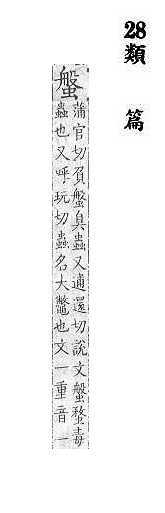 28類 篇
螌
蒲官切負螌臭蟲又逋還切說文螌蝥毒
蟲也又呼玩切蟲名大鼈也文一重音一